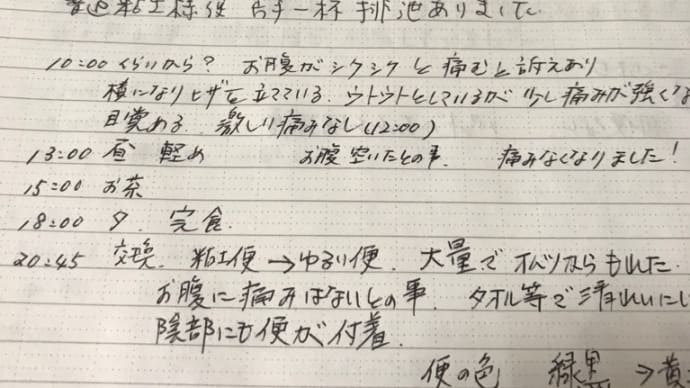 普通粘土様後 片手一杯 排泄ありました
10:00くらいから? お腹がシクシクと痛むと訴えあり
横になりヒザを立てている. ウトウトとしているが少し痛みが強くな
目覚める. 激しい痛みなし(12:00)
13:00 昼 軽め お腹空いたとの事. 痛みなくなりました!
15:00 お茶
18:00 夕. 完食.
20:45 交換. 粘土便→ゆるい便. 大量でオムツからもれた.
お腹に痛みはないとの事. タオル等で清拭
陰部にも便が付着.
便の色 緑黒 →黄